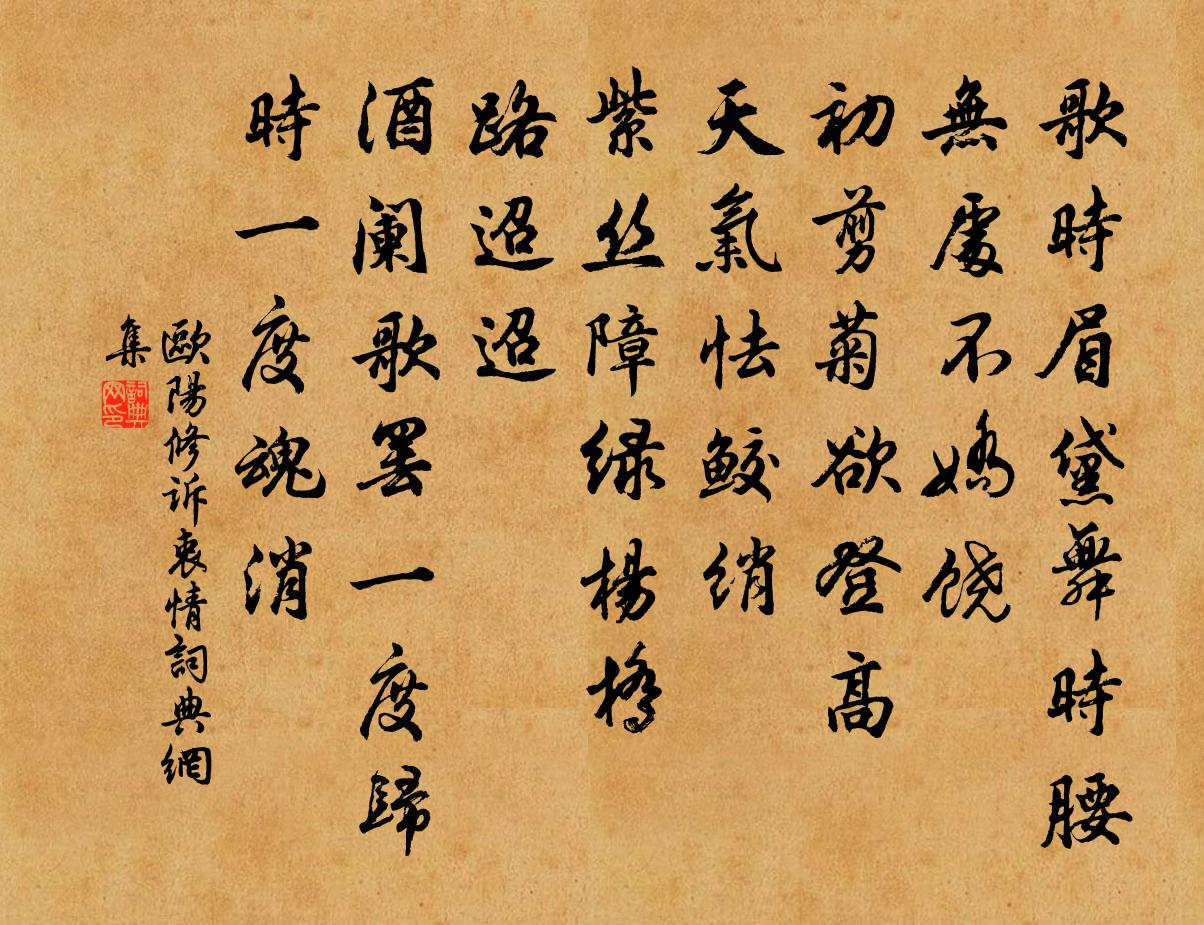 歌時眉黛舞時腰
無處不嬌饒
初剪菊欲登高
天氣怯鮫綃
紫丝障绿楊橋
路迢迢
酒阑歌罢一度歸
時一度魂消
歐陽修诉衷情詞典網
集
詞典
网印